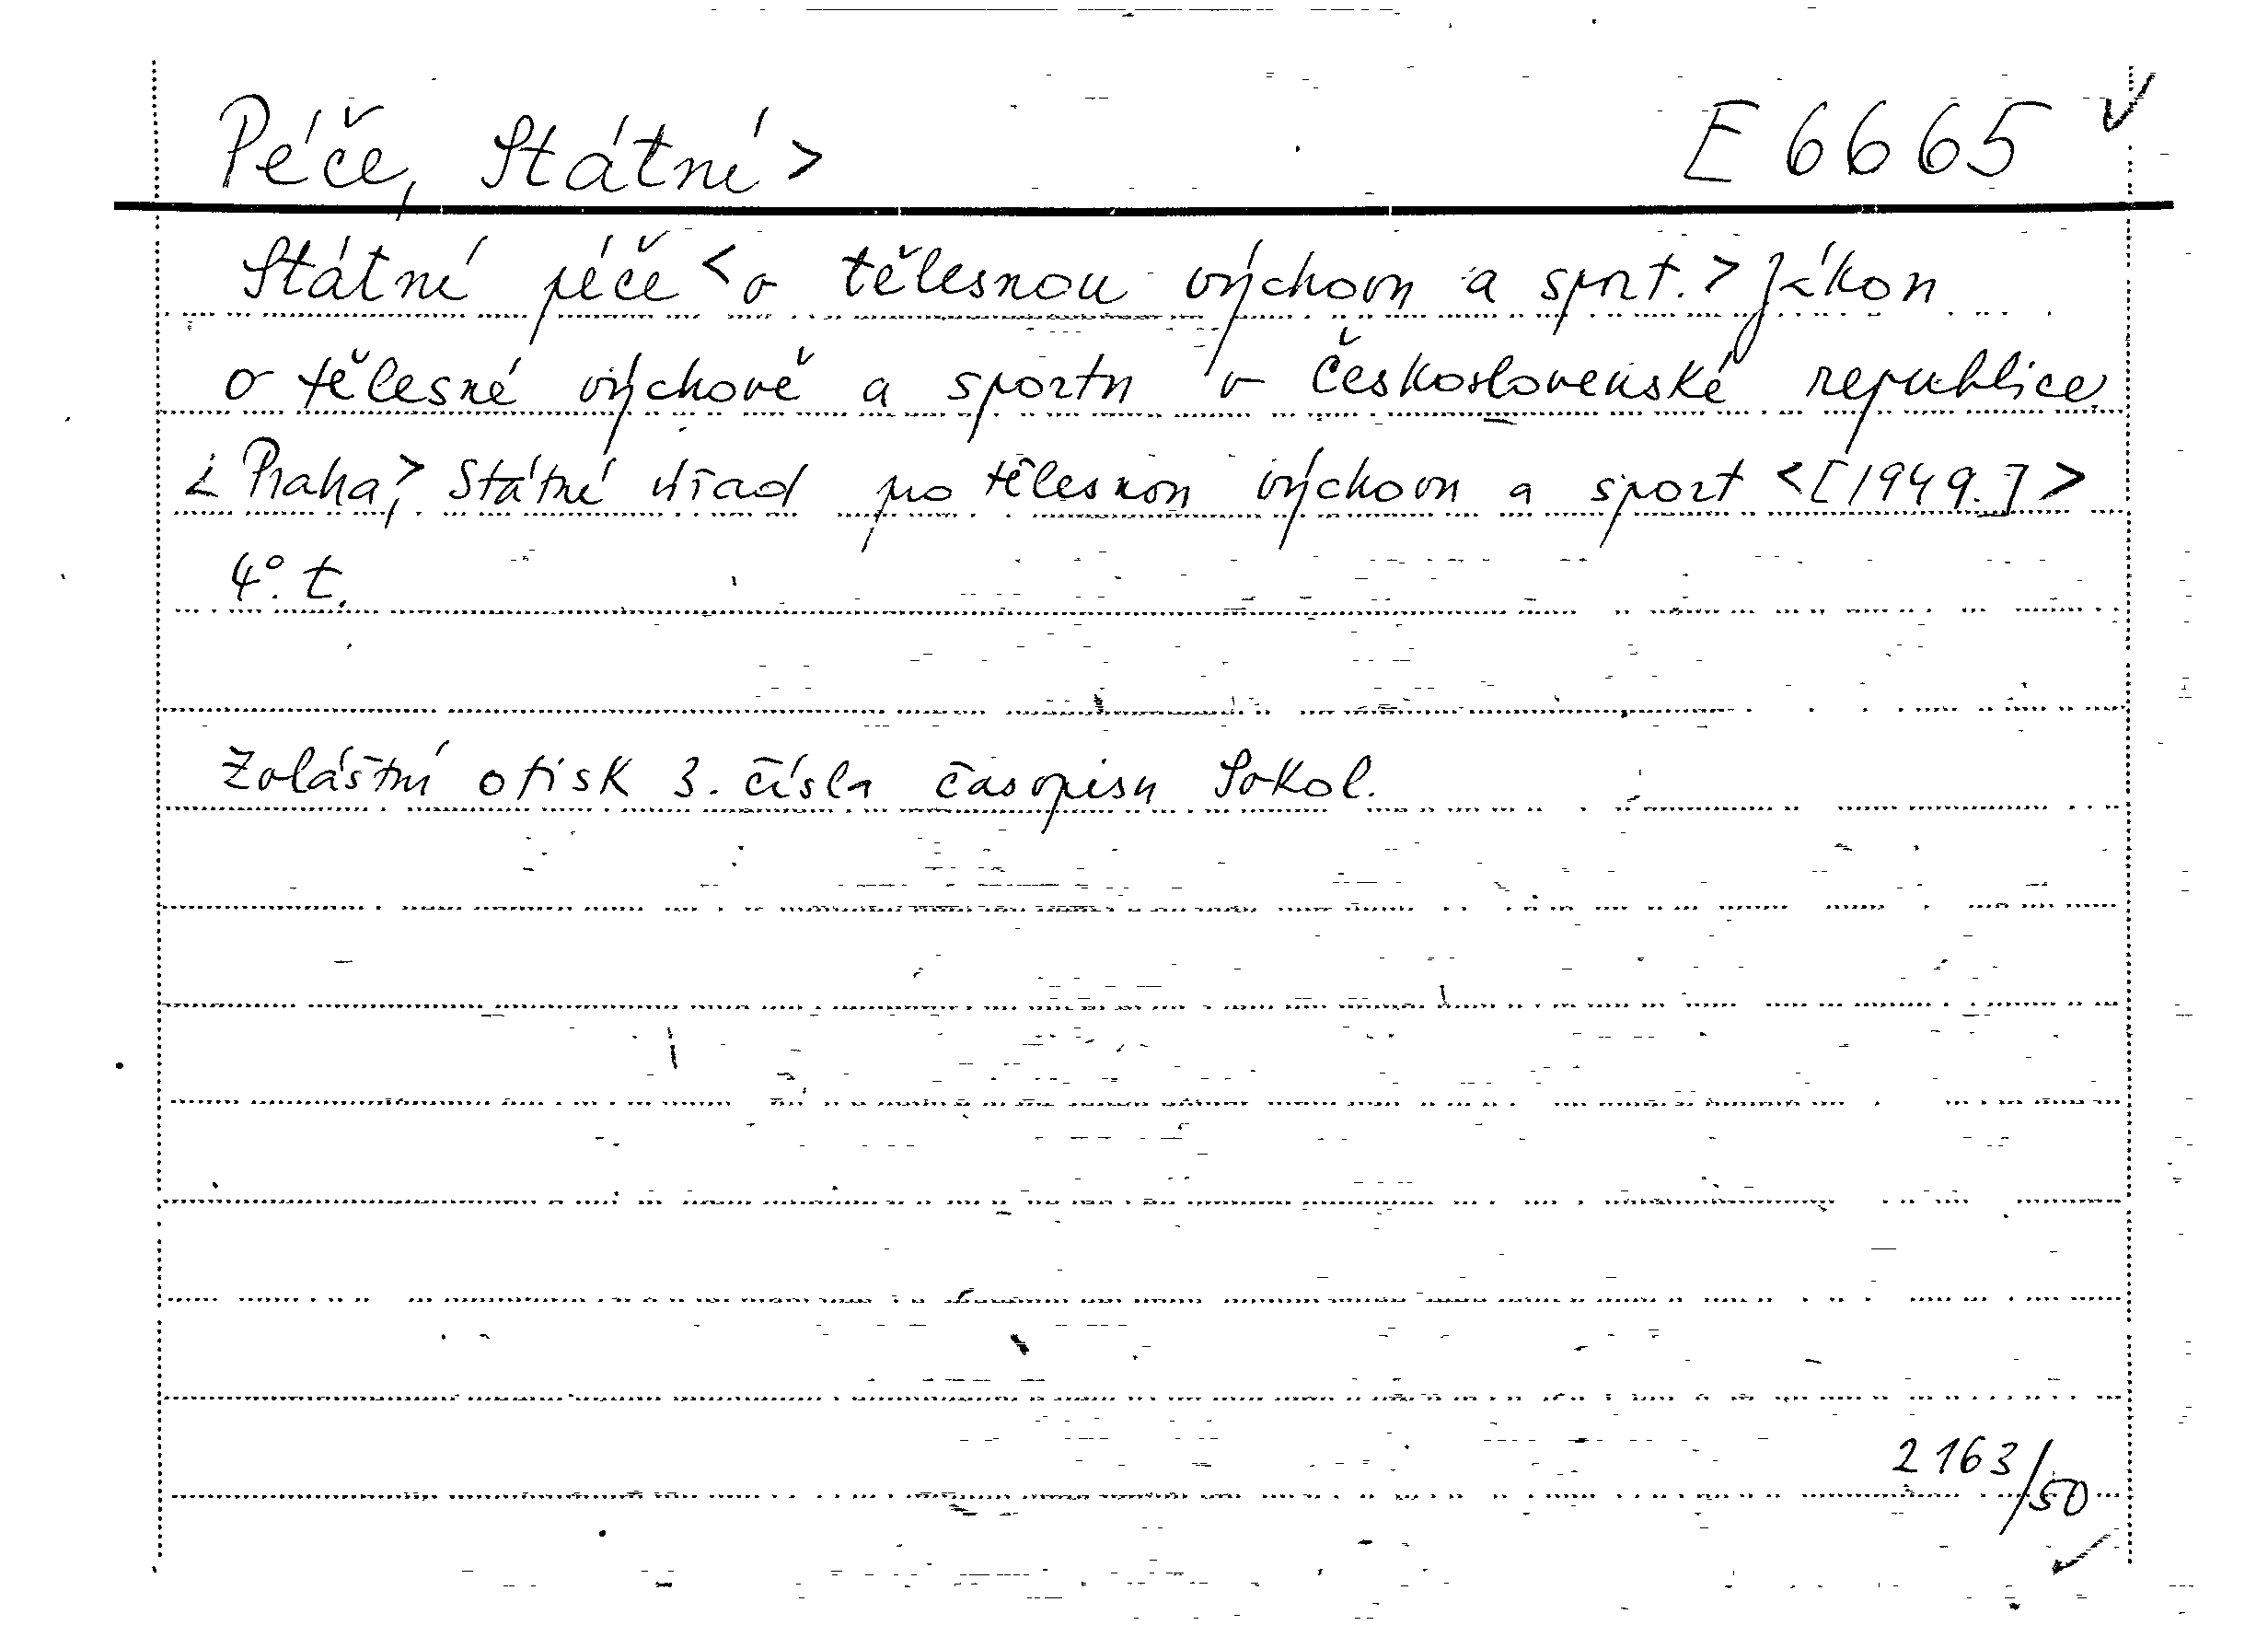 Péče, Státní > E 6665
Státní péče < o tělesnou výchovu a sport. > Zákon
o tělesné výchově a sportu v Československé republice
< Praha, > Státní úřad pro tělesnou výchovu a sport < [1949.] >
4°. t.
Zvláštní otisk 3. čísla časopisu Sokol.
2163/50